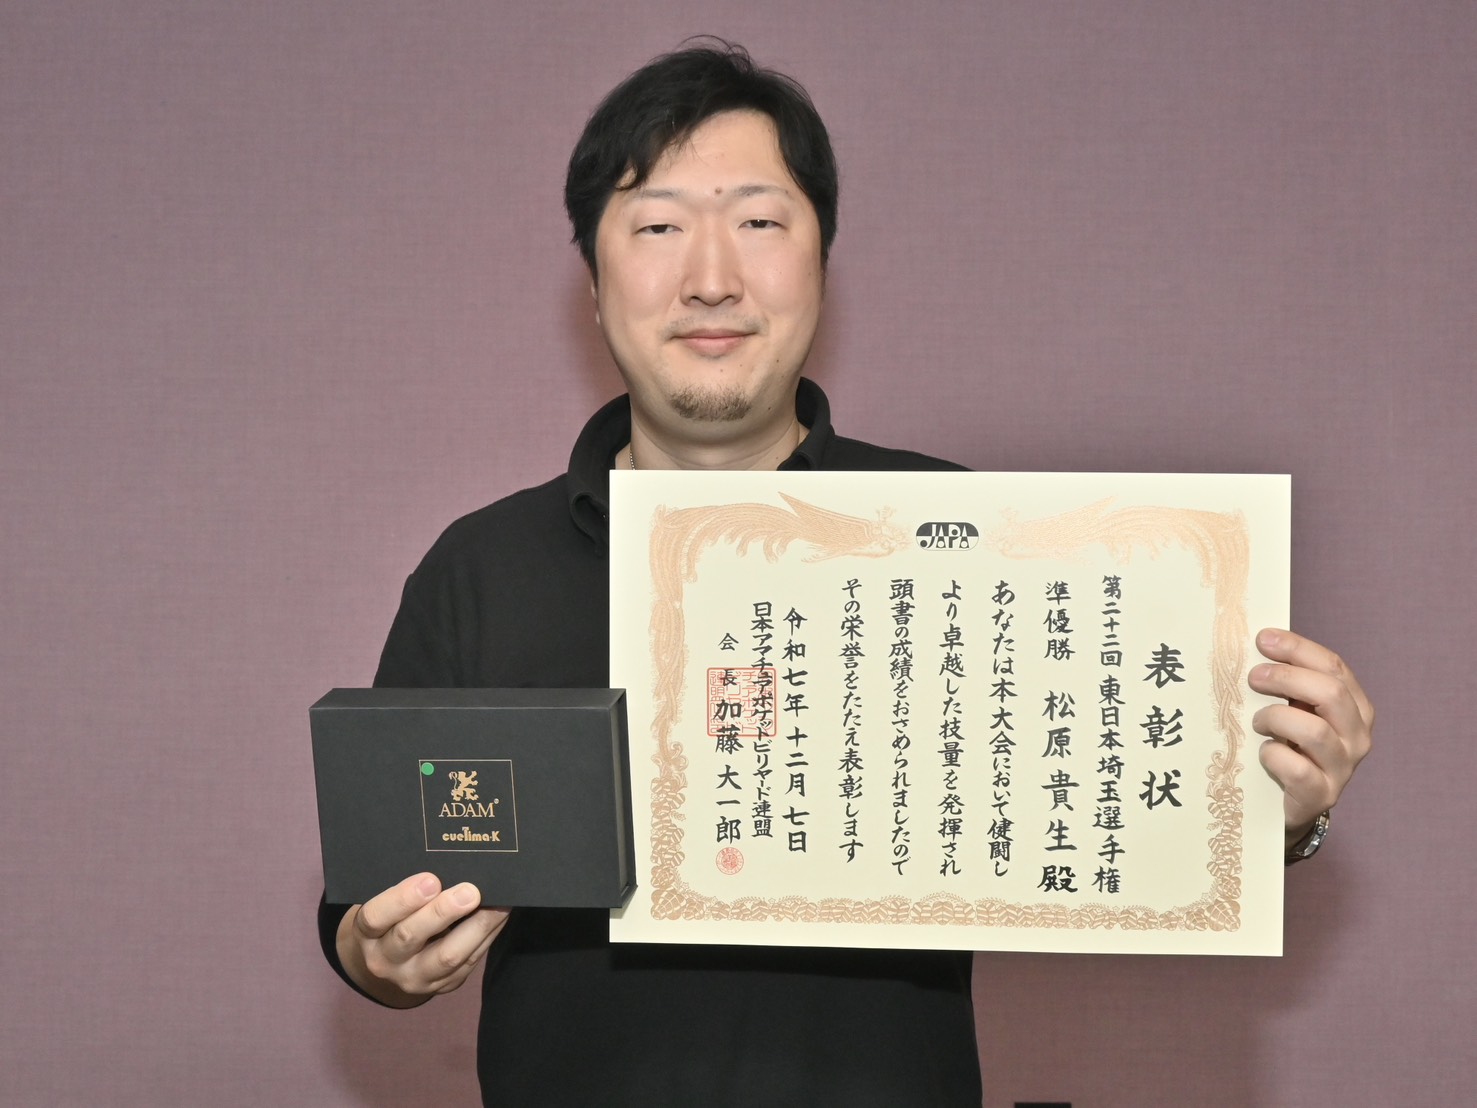 JAPA
表彰状
第二十二回 東日本埼玉選手権
準優勝 松原貴生殿
あなたは本大会において健闘し
より卓越した技量を発揮され
頭書の成績をおさめられましたので
その栄誉をたたえ表彰します
令和七年十二月七日
日本アマチュアポケットビリヤード連盟
会長 加藤大一郎
ADAM
cueTima·K